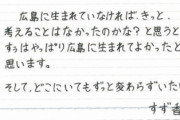 広島に生まれていなければ、きっと、
考えることはなかったのかな?と思うと
すずはやっぱり広島に生まれてよかったと
思います。
そして、どこにいてもずっと変わらずいたい
すず香